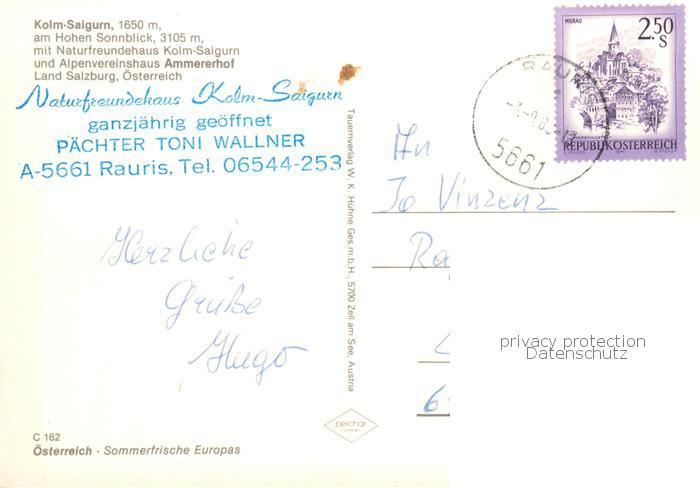 Kolm-Saigurn, 1650 m,
am Hohen Sonnblick, 3105 m,
mit Naturfreundehaus Kolm-Saigurn
und Alpenvereinshaus Ammererhof
Land Salzburg, Österreich
Naturfreundehaus Kolm-Saigurn
ganzjährig geöffnet
PÄCHTER TONI WALLNER
A-5661 Rauris, Tel. 06544-253
Herzliche
Grüße
Hugo
C 162
Österreich · Sommerfrische Europas
Tauernverlag W. K. Hühne Ges.m.b.H., 5700 Zell am See, Austria
MURAU
2.50
S
REPUBLIK ÖSTERREICH
5661
An
Jo Vinzenz
privacy protection
Datenschutz